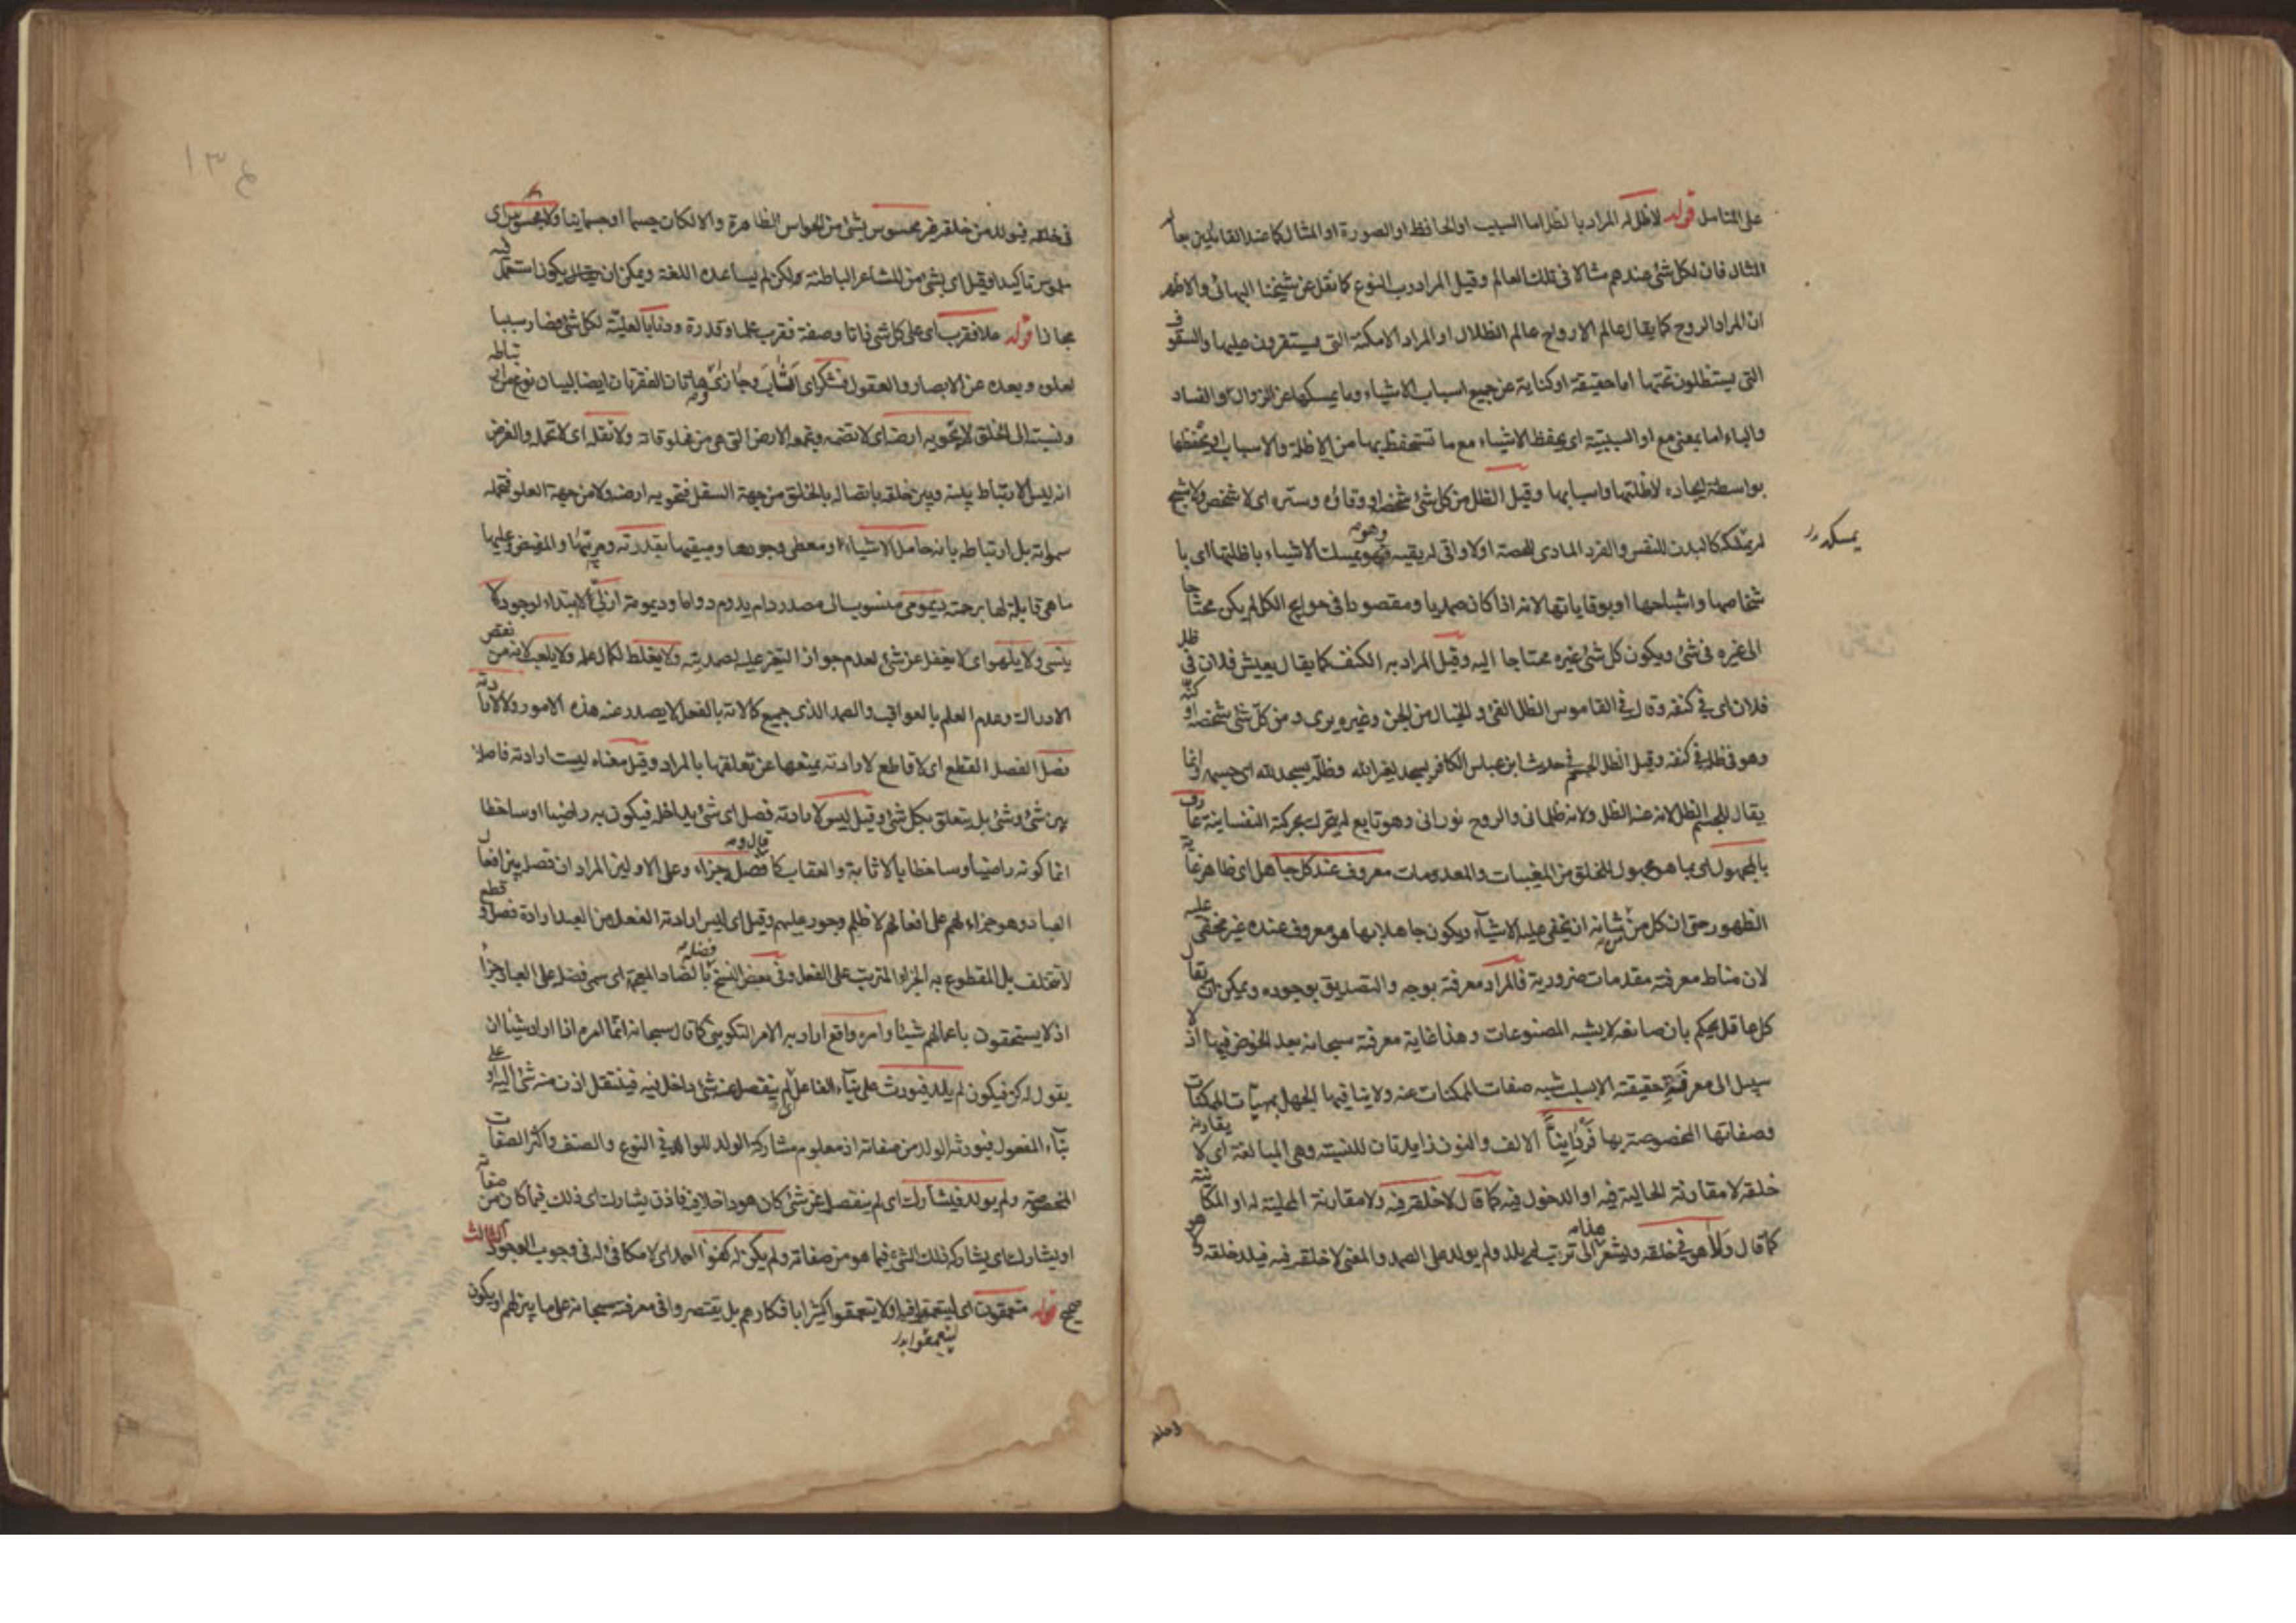 على المتامل قوله لا ظل له المراد بالظل اما السبب او الحافظ او الصورة او المثال كما عند القائلين بعا
المثال فان لكل شئ عندهم مثالا فى تلك العالم وقيل المراد رب النوع كما نقل عن شيخنا البهائى والاظهر
ان المراد الروح كما يقال عالم الارواح عالم الظلال او المراد الامكنة التى يستقرون عليها والسقوف
التى يستظلون تحتها اما حقيقة او كناية عن جميع اسباب الاشياء وما يمسكها عن الزوال والفساد
والباء اما بمعنى مع او السببية اى يحفظ الاشياء مع ما تستحفظ بها من الاظلة والاسباب او يحفظها
بواسطة ايجاده لاظلتها واسبابها وقيل الظل من كل شئ شخصه او وقاؤه وستره اى لا شخص ولا شبح
له يمسكه كالبدن للنفس والفرد المادى للحصة او لا واقى له يقيه وهو يمسك الاشياء باظلتها اى با
يمسكه
شخاصها واشباحها او بوقاياتها لانه اذا كان صمديا ومقصودا فى حوايج الكل لم يكن محتاجا
الى غيره فى شئ ويكون كل شئ غيره محتاجا اليه وقيل المراد به الكنف كما يقال يعيش فلان فى ظل
فلان اى فى كنفه وقال فى القاموس الظل الفئ والخيال من الجن وغيره يرى ومن كل شئ شخصه او كنه
وهو فى ظله فى كنفه وقيل الظل الجسم فى حديث ابن عباس الكافر يسجد لغير الله وظله يسجد لله اى جسمه وانما
يقال للجسم الظل لانه عنه الظل ولانه ظلمانى والروح نورانى وهو تابع له يتحرك بحركته النفسانية عارف
بالمجهول اى بما هو مجهول للخلق من المغيبات والمعدومات معروف عند كل جاهل اى ظاهر غاية
الظهور حتى ان كل من شانه ان يخفى عليه الاشياء ويكون جاهلا بها هو معروف عنده غير مخفى عليه
لان مناط معرفته مقدمات ضرورية فالمراد معرفته بوجه والتصديق بوجوده ويمكن ان يقال
كل عاقل يحكم بان صانعه لا يشبه المصنوعات وهذا غاية معرفته سبحانه بعد الخوض فيها اذ لا
سبيل الى معرفة حقيقته الا بسلب شبه صفات الممكنات عنه ولا ينافيها الجهل بمهيات الممكنات
وصفاتها المخصوصة بها فردانيا الالف والنون زايدتان للنسبة وهى المبالغة اى لا يقارنه
خلقه لا مقارنة الحالية فيه او الدخول فيه كما قال لا خلقه فيه ولا مقارنة المحلية له او المكانية
كما قال ولا هو فى خلقه ويشعر هذا الى ترتب لم يلد ولم يولد على الصمد والمعنى لا خلقه فيه فيلد خلقه ولا هو
١٣٤
فى خلقه فيولد من خلقه غير محسوس بشئ من الحواس الظاهرة والا لكان جسما او جسمانيا ولا مجسوس اى
ملموس تاكيد او قيل اى بشئ من المشاعر الباطنة ولكن لم يساعده اللغة ويمكن ان يكون استعمل فيه
مجازا قوله علا فقرب اى على كل شئ ذاتا وصفة فقرب علما وقدرة ودنا بالعلية لكل شئ فصار سببا
لعلوه وبعده عن الابصار والعقول فشكر اى اثاب وجازى وهاتان الفقرتان ايضا لبيان نوع من ارتباطه
ونسبته الى الخلق لا تحويه ارضه اى لا تضمه وتجمعه الارض التى هى من مخلوقاته ولا تقله اى لا تحمله والغرض
انه ليس الارتباط بينه وبين خلقه باتصاله بالخلق من جهة السفل فتحويه ارضه ولا من جهة العلو فتحمله
سمواته بل ارتباطه بانه حامل الاشياء ومعطى وجودها ومبقيها بقدرته ومربيها والمفيض عليها
ما هى قابلة لها برحمته ديمومى منسوب الى مصدر دام يدوم دواما وديمومة ازلى لا ابتداء لوجوده لا
ينسى ولا يلهو اى لا يغفل عن شئ لعدم جواز التغير عليه لصمديته ولا يغلط لكمال علمه ولا يلعب لانه من نقص
الادراك وعدم العلم بالعواقب والصمد الذى جميع كالاته بالفعل لا يصدر عنه هذه الامور ولا لارادته
فصل الفصل القطع اى لا قاطع لارادته يمنعها عن تعلقها بالمراد وقيل معناه ليست ارادته فاصلة
بين شئ وشئ بل يتعلق بكل شئ وقيل ليس لارادته فصل اى شئ يداخله فيكون به راضيا او ساخطا
انما كونه راضيا وساخطا بالاثابة والعقاب كما قال وفصله جزاء وعلى الاولين المراد ان فصله بين افعال
العباد وهو جزاء لهم على افعالهم لا ظلم وجور عليهم وقيل اى ليس ارادته الفعل من العبد ارادة فصل وقطع
لا تتخلف بل المقطوع به الجزاء المترتب على الفعل وفى بعض النسخ فضله بالضاد المعجمة اى سمى فضله على العباد جزاء
اذ لا يستحقون باعمالهم شيئا وامره واقع اراد به الامر التكوينى كما قال سبحانه انما امره اذا اراد شيئا ان
يقول له كن فيكون لم يلد فيورث على بناء الفاعل لم ينفصل عنه شئ داخل فيه فينتقل اذن منه شئ اليه او على
بناء المفعول فيورثه الولد من صفاته اذ معلوم مشاركة الولد للوالد فى النوع والصنف واكثر الصفات
المخصوصة ولم يولد فيشارك اى لم ينفصل عن شئ كان هو داخلا فيه فاذن يشارك اى ذلك فيما كان من صفاته
او يشارك اى يشاركه ذلك الشئ فيما هو من صفاته ولم يكن له كفوا احد اى لا مكافئ له فى وجوب الوجود الثالث
صحيح قوله متعمقون اى ليتعمقوا فيها ولا يتعمقوا كثيرا بافكارهم بل يقتصروا فى معرفته سبحانه على ما بين لهم او يكون
ليتعمقوا